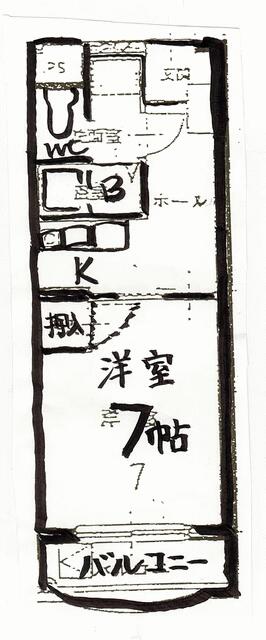 PS
玄関
WC
B
ホール
K
押入
洋室
7帖
7
バルコニー